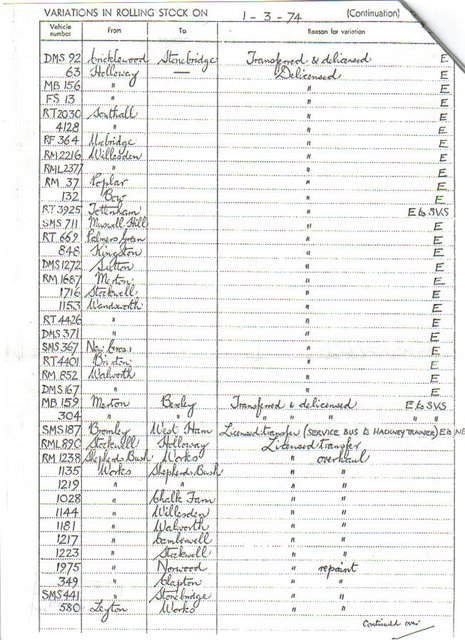 VARIATIONS IN ROLLING STOCK ON 1-3-74 (Continuation)
Vehicle number From To Reason for variation
DMS 92 Cricklewood Stonebridge Transferred & delicensed E
63 Holloway — Delicensed E
MB 156 " " E
FS 13 " " E
RT 2030 Southall " E
4128 " " E
RF 364 Uxbridge " E
RM 2216 Willesden " E
RML 2377 " " E
RM 37 Poplar " E
132 Bow " E
RT 3925 Tottenham " E to SVS
SMS 711 Muswell Hill " E
RT 669 Palmers Green " E
848 Kingston " E
DMS 1272 Sutton " E
RM 1687 Merton " E
1716 Stockwell " E
1153 Wandsworth " E
RT 4426 " " E
DMS 371 " " E
SMS 367 New Cross " E
RT 4401 Brixton " E
RM 852 Walworth " E
DMS 167 " " E
MB 159 Merton Bexley Transferred & delicensed E to SVS
304 " " " " " " "
SMS 187 Bromley West Ham Licensed transfer (SERVICE BUS to HACKNEY TRAINER) E to NE
RML 890 Stockwell Holloway Licensed transfer
RM 1238 Shepherds Bush Works " overhaul
1135 Works Shepherds Bush " "
1219 " " " "
1028 " Chalk Farm " "
1144 " Willesden " "
1181 " Walworth " "
1217 " Camberwell " "
1223 " Stockwell " "
1975 " Norwood " repaint
349 " Clapton " "
SMS 441 " Stonebridge " "
580 Leyton Works " "
Continued over